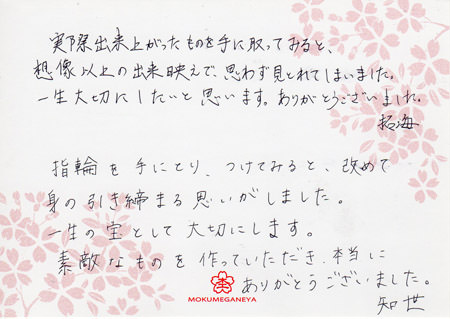 実際出来上がったものを手に取ってみると、
想像以上の出来映えで、思わず見とれてしまいました。
一生大切にしたいと思います。ありがとうございました。
拓海
指輪を手にとり、つけてみると、改めて
身の引き締まる思いがしました。
一生の宝として大切にします。
素敵なものを作っていただき、本当に
ありがとうございました。
知世
MOKUMEGANEYA